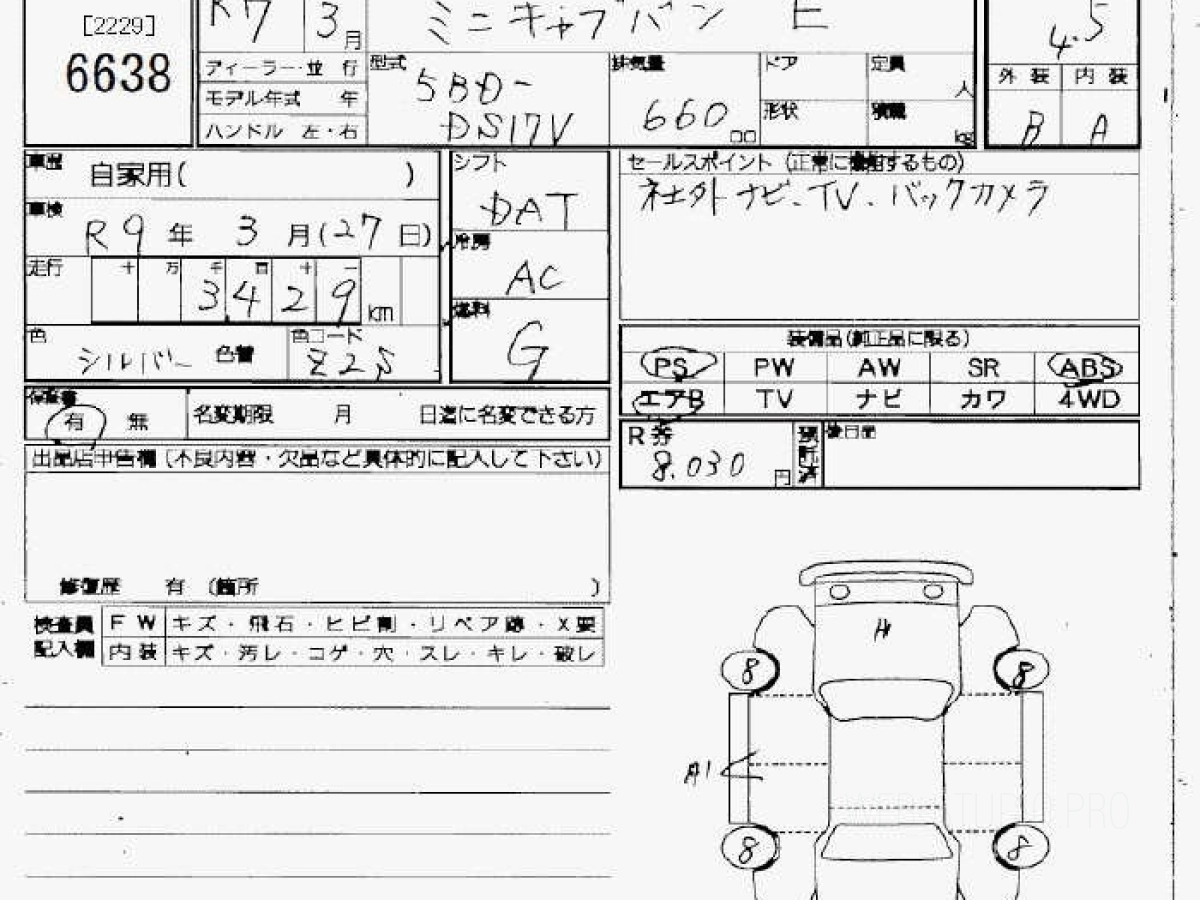 [2229]
6638
R7 3月
ミニキャブバン E
4.5
ディーラー・並 行
モデル年式 年
ハンドル 左・右
型式
5BD-
DS17V
排気量
660
ドア
定員
人
形状
積載
kg
外 装 内 装
B A
車歴 自家用( )
車検 R9年 3月(27日)
走行
十 万 千 百 十 一
3 4 2 9 km
色
シルバー 色替
色コード
Z2S
シフト
DAT
冷房
AC
燃料
G
セールスポイント (正常に機能するもの)
社外ナビ、TV、バックカメラ
装備品(純正品に限る)
PS PW AW SR ABS
エアB TV ナビ カワ 4WD
保証書
有 無
名変期限 月 日迄に名変できる方
R券
8.030
円
預託済
後日品
出品店申告欄(不良内容・欠品など具体的に記入して下さい)
修復歴 有 (箇所 )
検査員
記入欄
FW キズ・飛石・ヒビ割・リペア跡・X要
内装 キズ・汚レ・コゲ・穴・スレ・キレ・破レ
8
8
A1
8
8